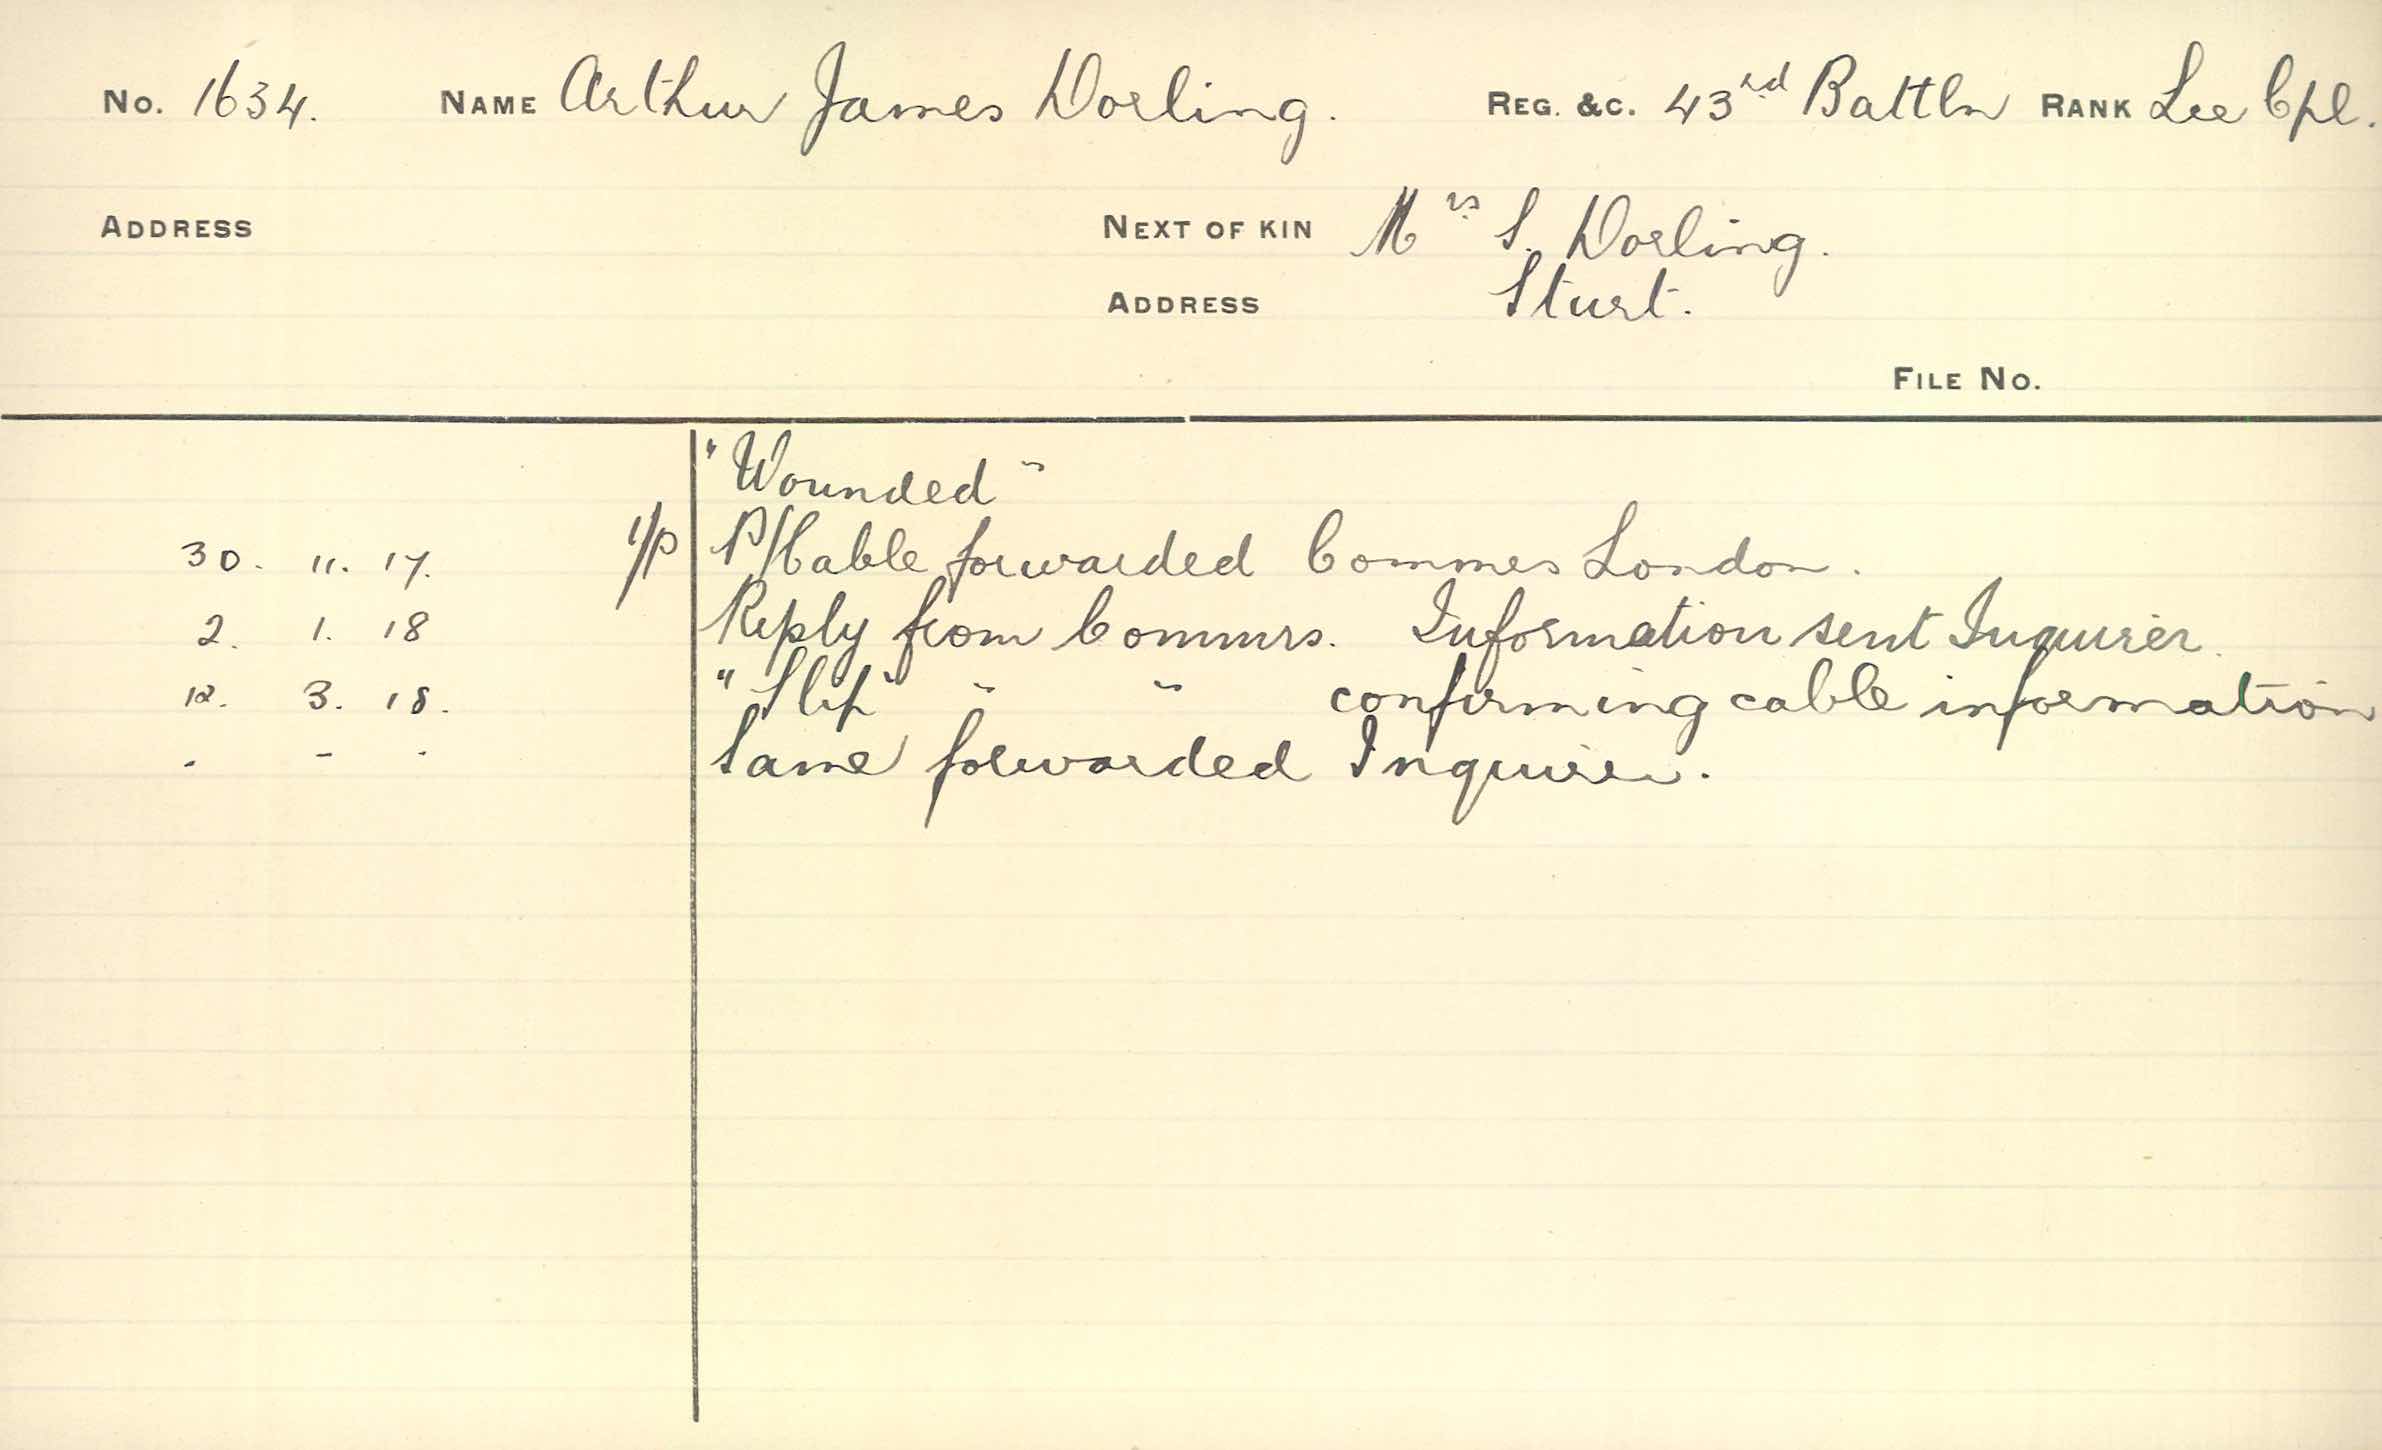 No. 1634. NAME Arthur James Dorling. REG. &C. 43rd Battln RANK Lce Cpl.
ADDRESS NEXT OF KIN Mrs S. Dorling.
ADDRESS Sturt.
FILE No.
"Wounded"
30. 11. 17. P/Cable forwarded Commrs London.
2. 1. 18 Reply from Commrs. Information sent Inquirer.
12. 3. 18. "Slip" " " confirming cable information
" " " Same forwarded Inquirer.